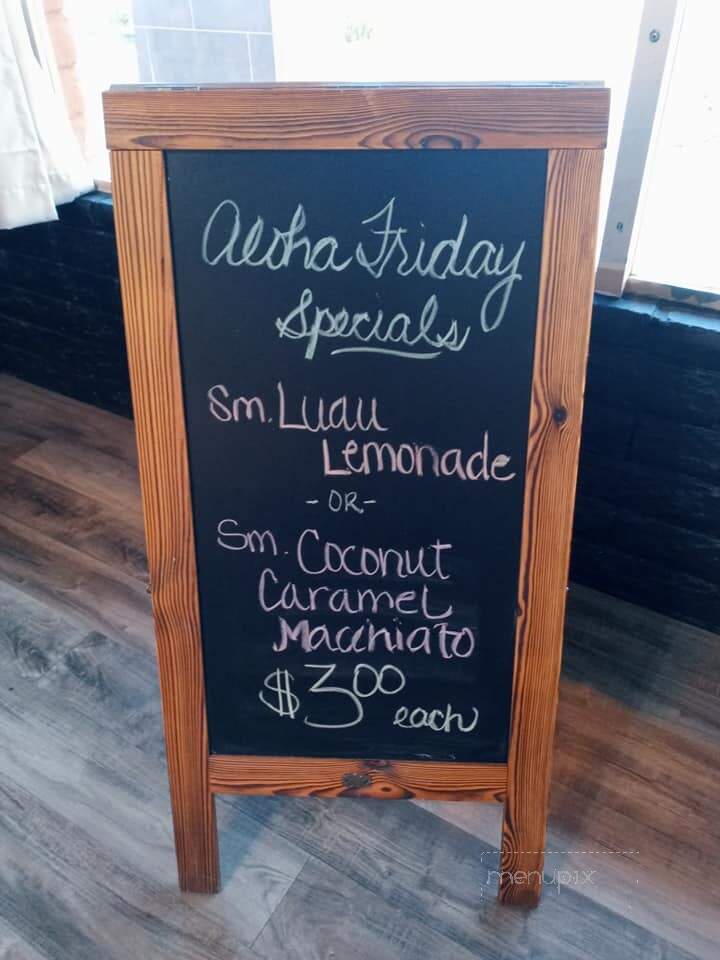 Aloha Friday
Specials
Sm. Luau
Lemonade
- OR -
Sm. Coconut
Caramel
Macchiato
$3.00 each
menupix